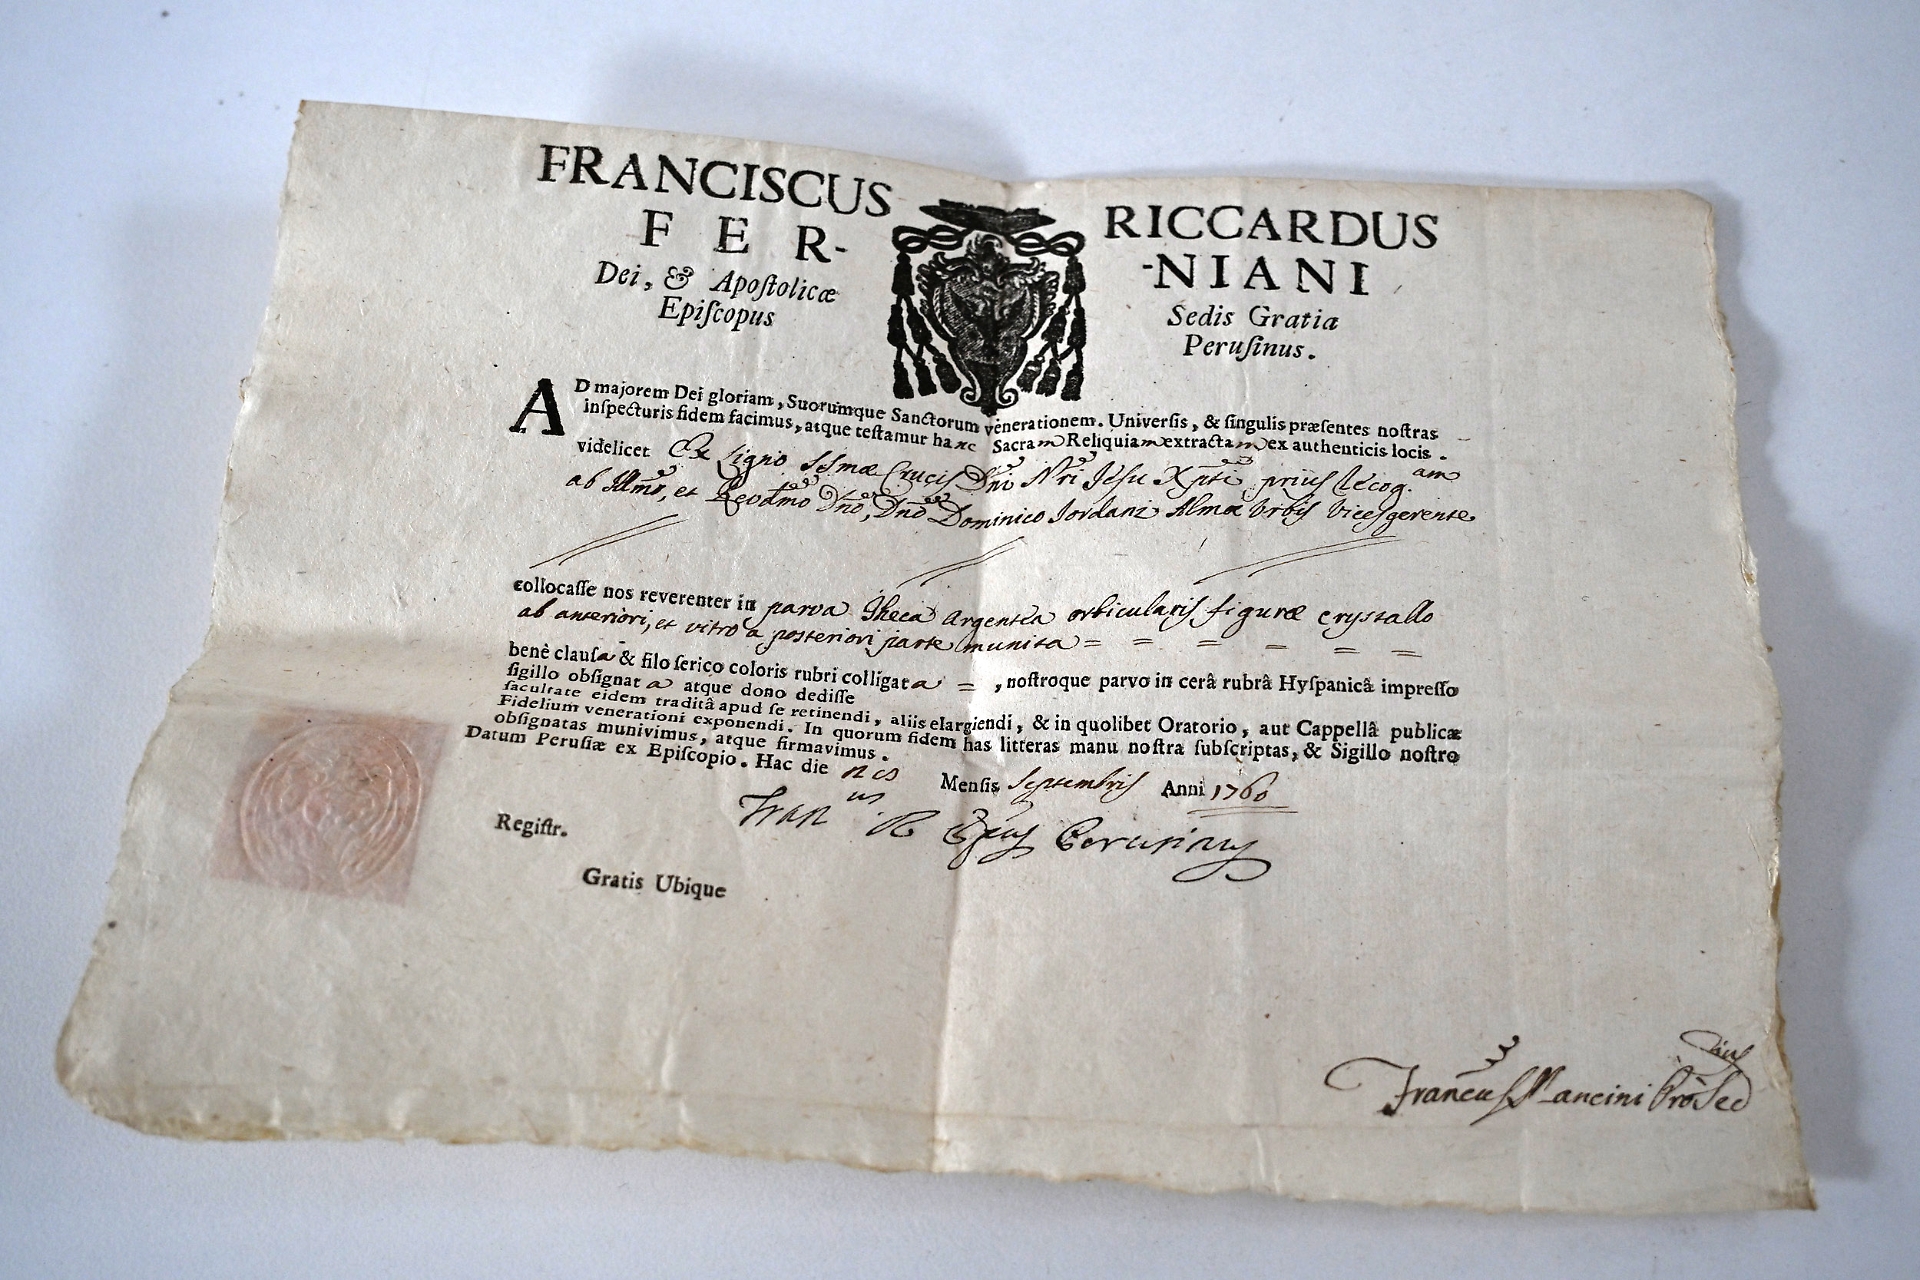 FRANCISCUS RICCARDUS
FER- -NIANI
Dei, & Apoſtolicæ Sedis Gratia
Epiſcopus Peruſinus.
AD majorem Dei gloriam, Suorumque Sanctorum venerationem. Univerſis, & ſingulis præſentes noſtras
inſpecturis fidem facimus, atque teſtamur hanc Sacram Reliquiam extractam ex authenticis locis.
videlicet Ex Ligno SSmæ Crucis Dni Nri Jesu Xpti prius recog.am
ab Illmo, et Revdmo Dno, Dno Dominico Iordani Almæ Urbis Vicesgerente
collocaſſe nos reverenter in parva Theca Argentea orbicularis figuræ crystallo
ab anteriori, et vitro a posteriori parte munita = = = = = =
benè clauſa & filo ſerico coloris rubri colligata = , noſtroque parvo in cerâ rubrâ Hyſpanicâ impreſſo
ſigillo obſignata atque dono dediſſe
facultate eidem traditâ apud ſe retinendi, aliis elargiendi, & in quolibet Oratorio, aut Cappellâ publicæ
Fidelium venerationi exponendi. In quorum fidem has litteras manu noſtra ſubſcriptas, & Sigillo noſtro
obſignatas munivimus, atque firmavimus.
Datum Peruſiæ ex Epiſcopio. Hac die Menſis Septembris Anni 1760
Franus R Epus Perusinus
Regiſtr.
Gratis Ubique
Francus Mancini Pro Sec